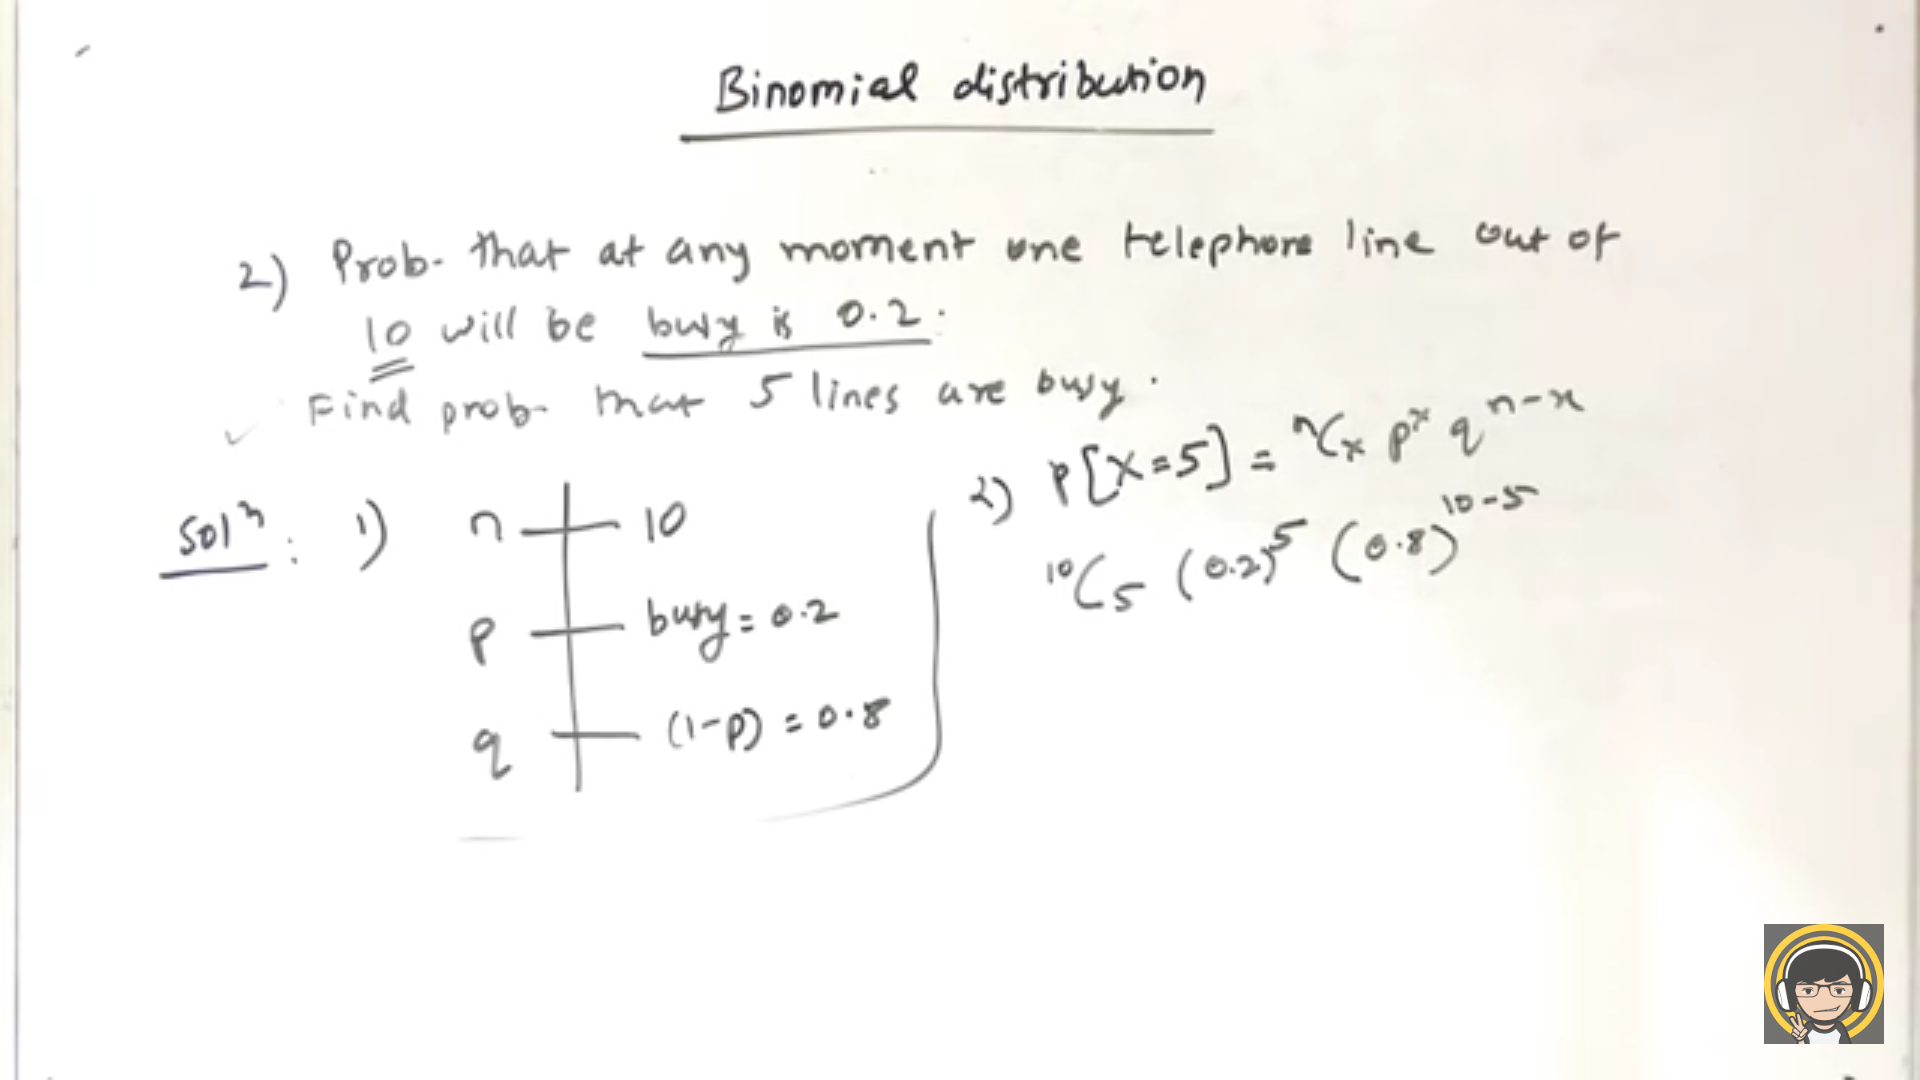 Binomial distribution
2) Prob. that at any moment one telephone line out of
10 will be busy is 0.2.
Find prob. that 5 lines are busy.
Solⁿ: 1) n 10
p busy = 0.2
q (1-p) = 0.8
2) P[X=5] = ⁿCₓ pˣ qⁿ⁻ˣ
¹⁰C₅ (0.2)⁵ (0.8)¹⁰⁻⁵